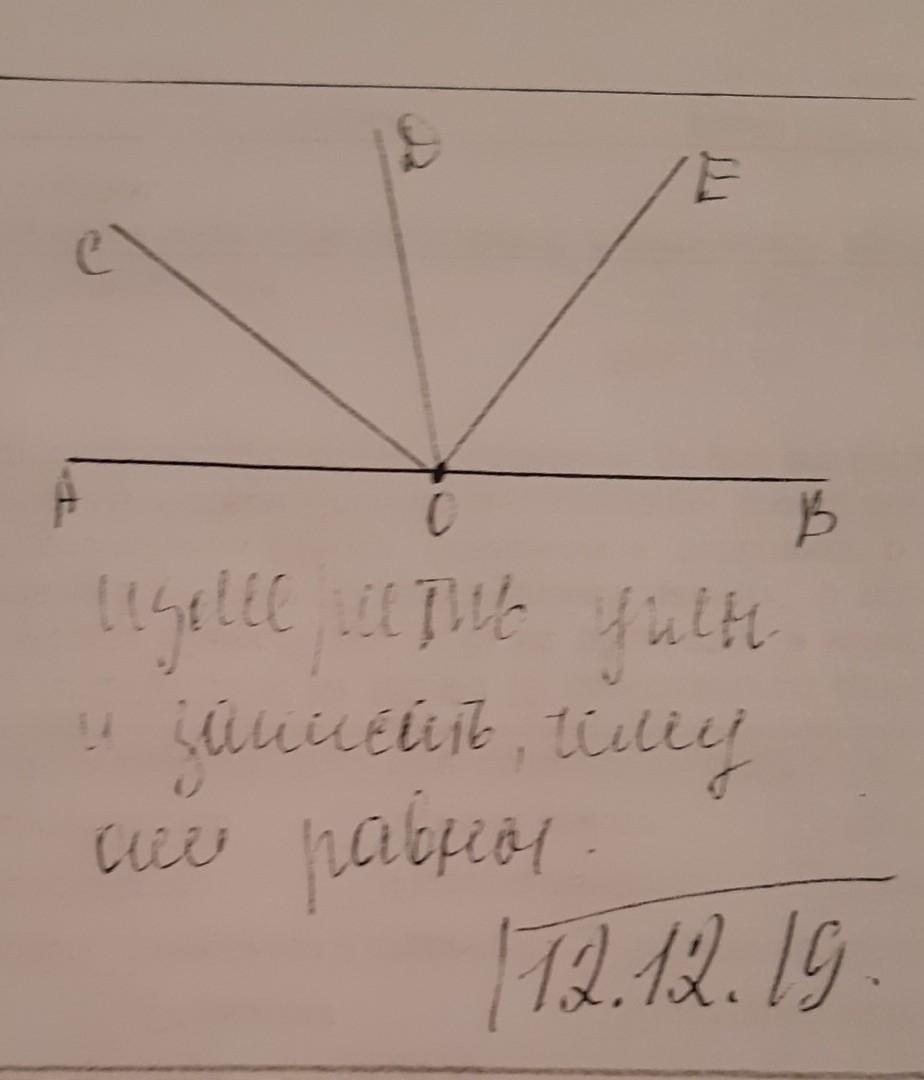 C
D
E
A
O
B
измерить углы
и записать, чему
они равны.
12.12.19.